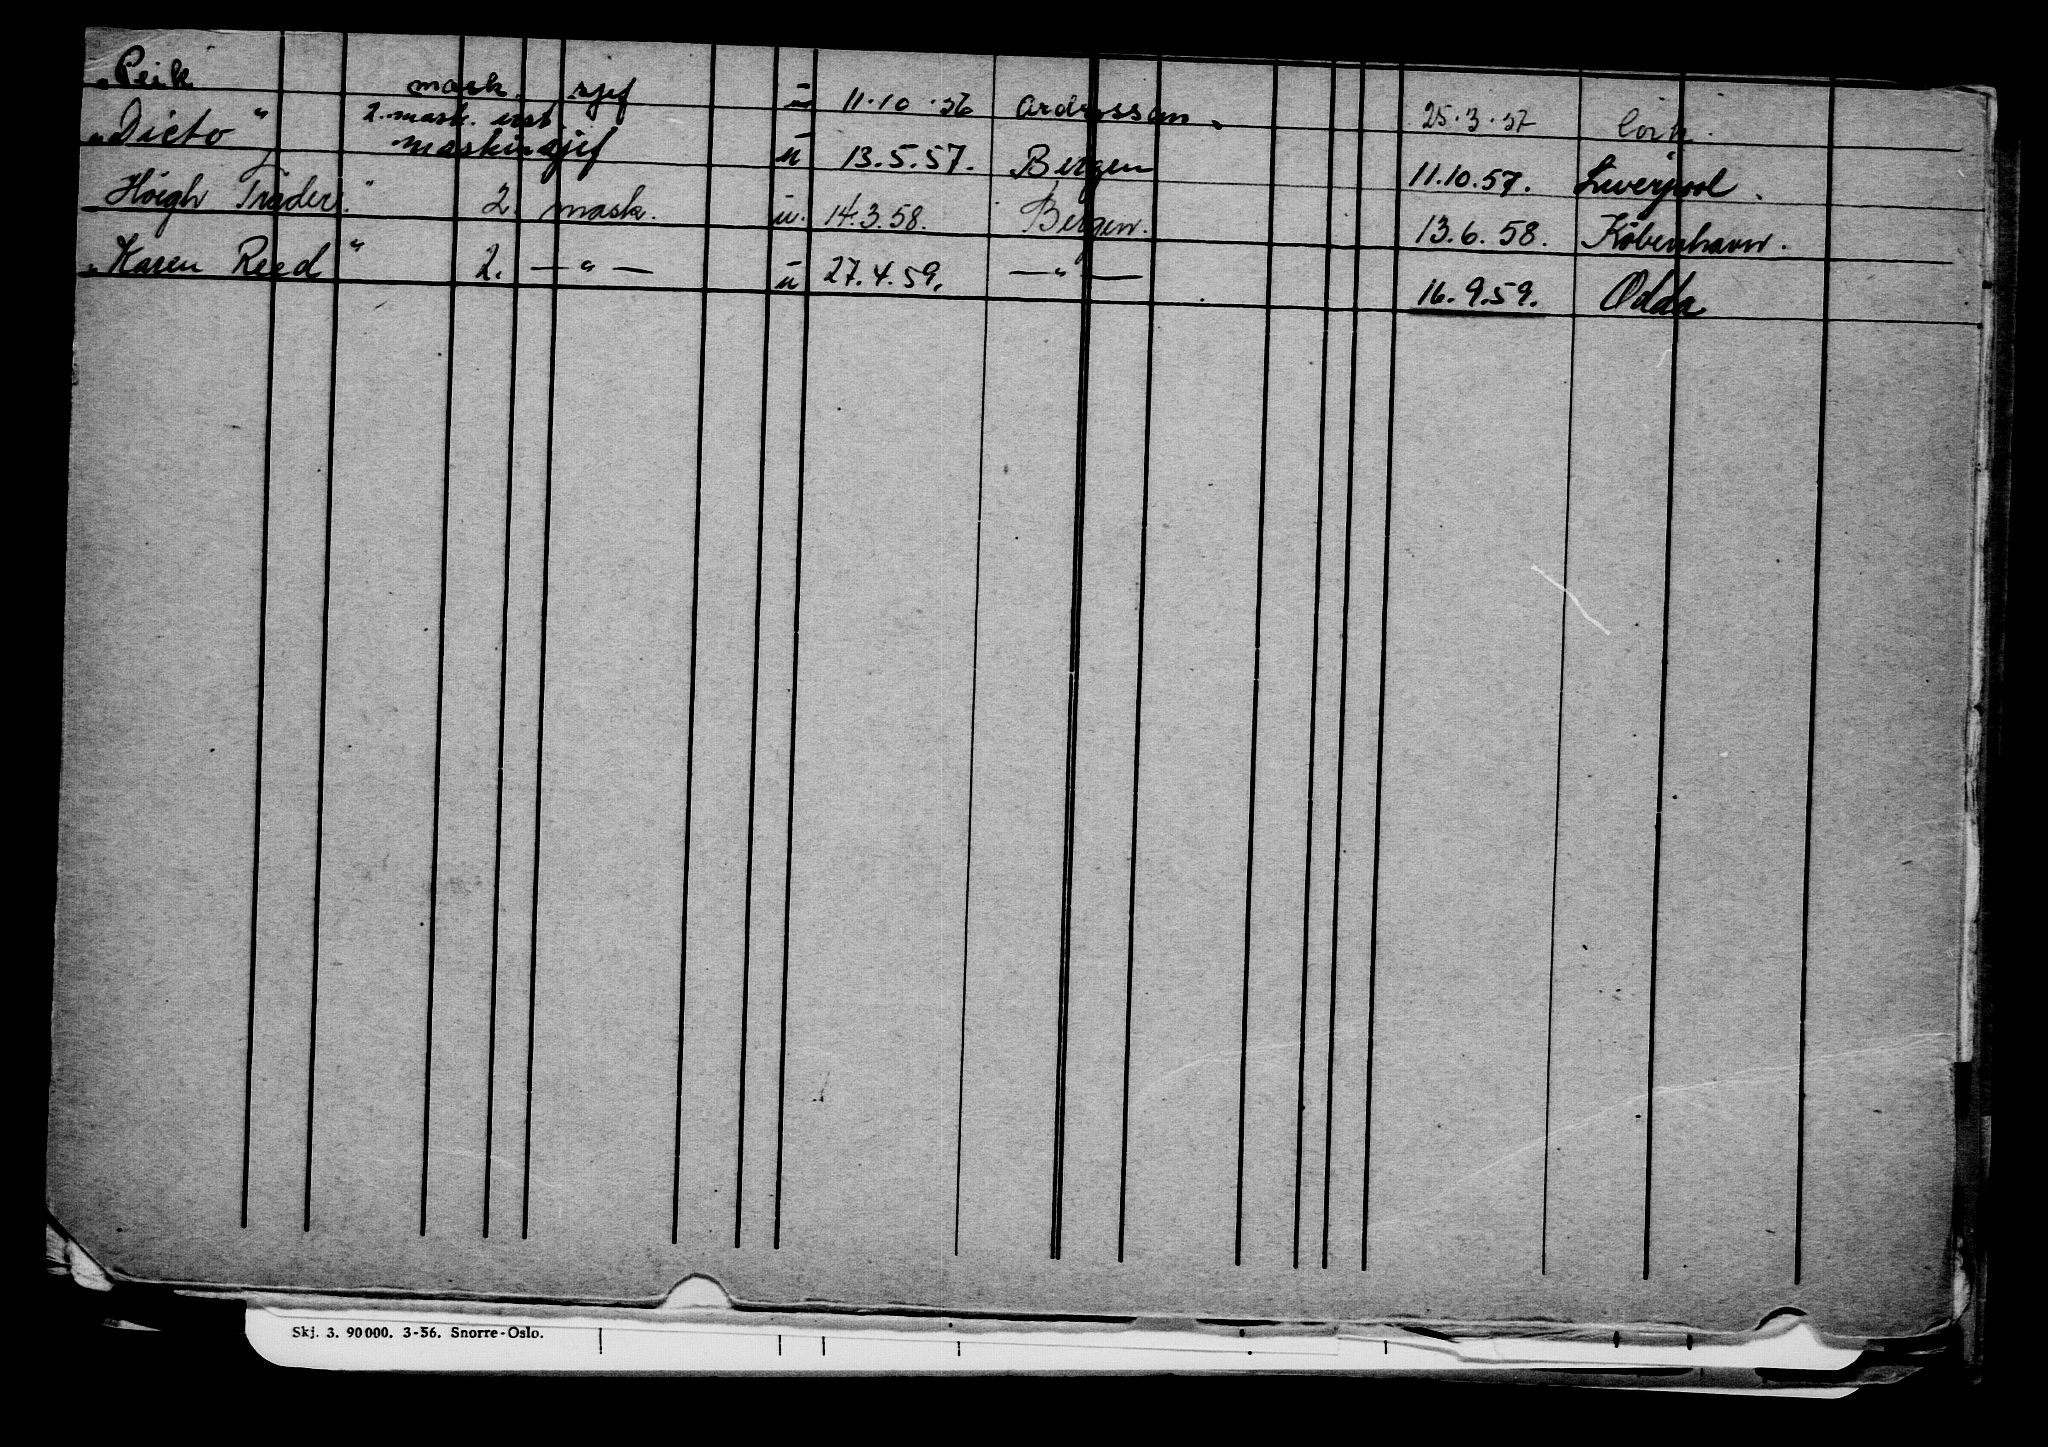 "Peik mask. sjef ū 11.10.56 Ardrossan. 25.3.57 Cork.
2. mask. inst
"Dicto" maskinsjef ū 13.5.57. Bergen 11.10.57. Liverpool.
Höigh Träder." 2. mask. ū. 14.3.58. Bergen. 13.6.58. København.
"Karen Reed" 2. —"— ū 27.4.59. —"— 16.9.59. Odda
Skj. 3. 90000. 3-56. Snorre-Oslo.